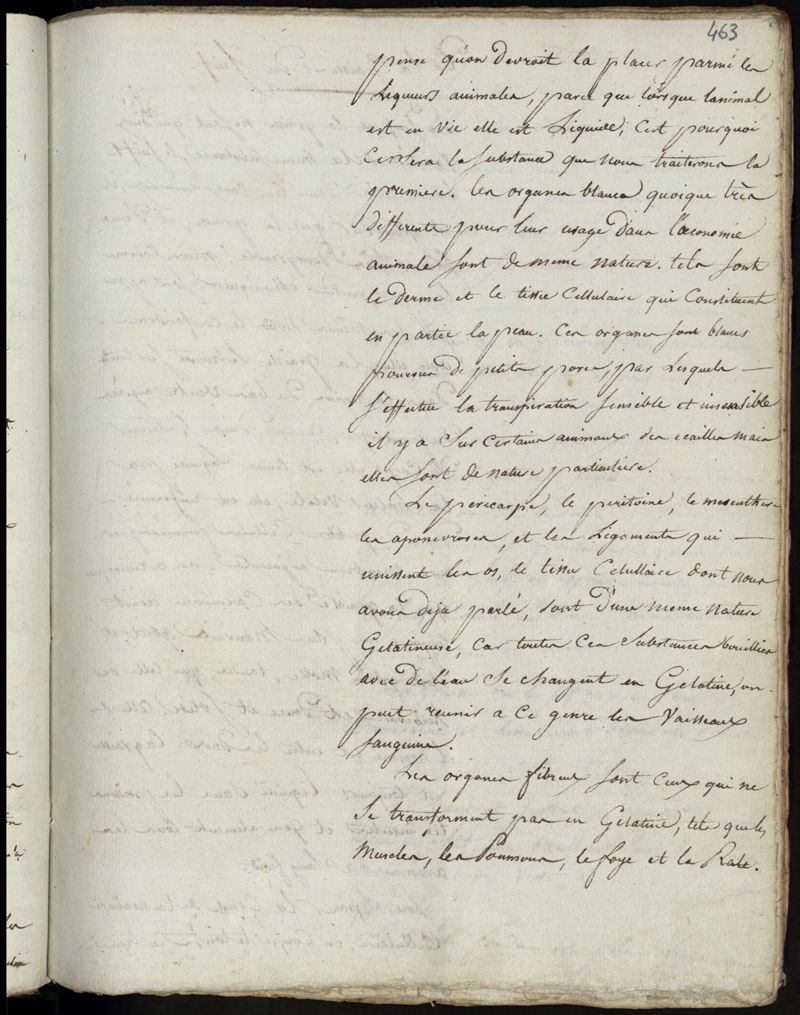 463
pense qu'on devroit la placer parmé les
Liqueurs animales, parce que lorsque lanimal
est en vie elle est Liquide, c'est pourquoi
Ce sera la substance que nous traiterons la
premiere. les organes blancs quoique très
differents pour leur usage dans l'œconomie
animale sont de meme nature. tels sont
le derme et le tissu Cellulaire qui Constituent
en partie la peau. Ces organes sont blancs
pourvus de petits pores, par Lesquels —
S'effectue la transpiration sensible et insensible
il y a sur certains animaux des ecailles mais
elles sont de nature particuliere.
Le pericarpe, le peritoine, le mesenthere
les aponevroses, et les Ligaments qui —
unissent les os, le tissu Celullaire dont nous
avons deja parlé, sont d'une meme nature
Gelatineuse, car toutes ces substances bouillies
avec de l'eau se changent en Gelatine, on
peut reunir a ce genre les Vaisseaux
sanguins.
Les organes fibreux sont ceux qui ne
se transforment pas en Gelatine, tels que les
Muscles, les Poumons, le foye et la Rate.